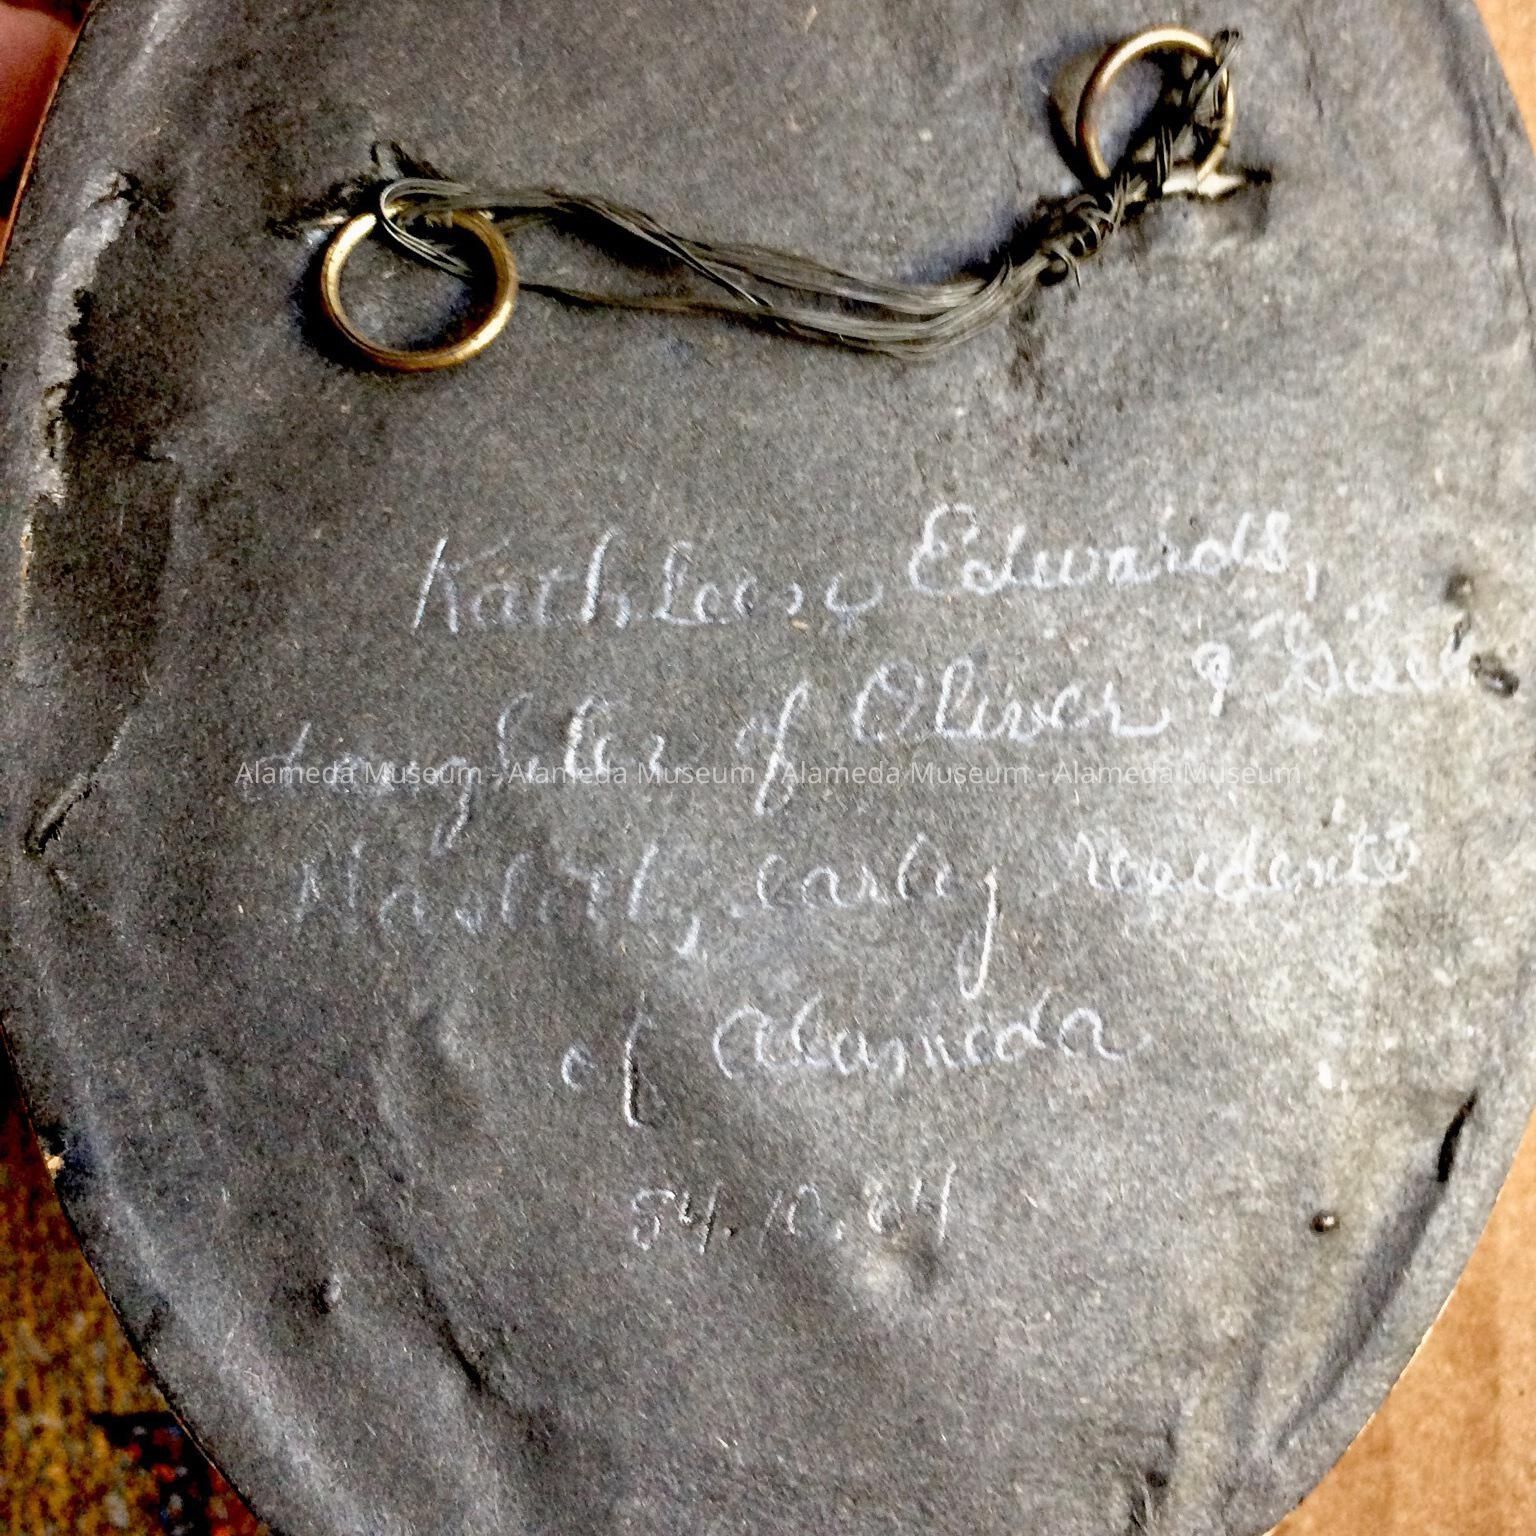 Kathleen Edwards,
daughter of Oliver &
early residents
of Alameda
84.10.24
Alameda Museum - Alameda Museum - Alameda Museum - Alameda Museum